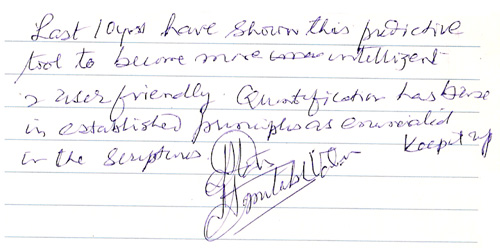 Last 10 yrs have shown this predictive
tool to become more intelligent
& user friendly. Quantification has base
in established principles as enunciated
in the scriptures. Keep it up